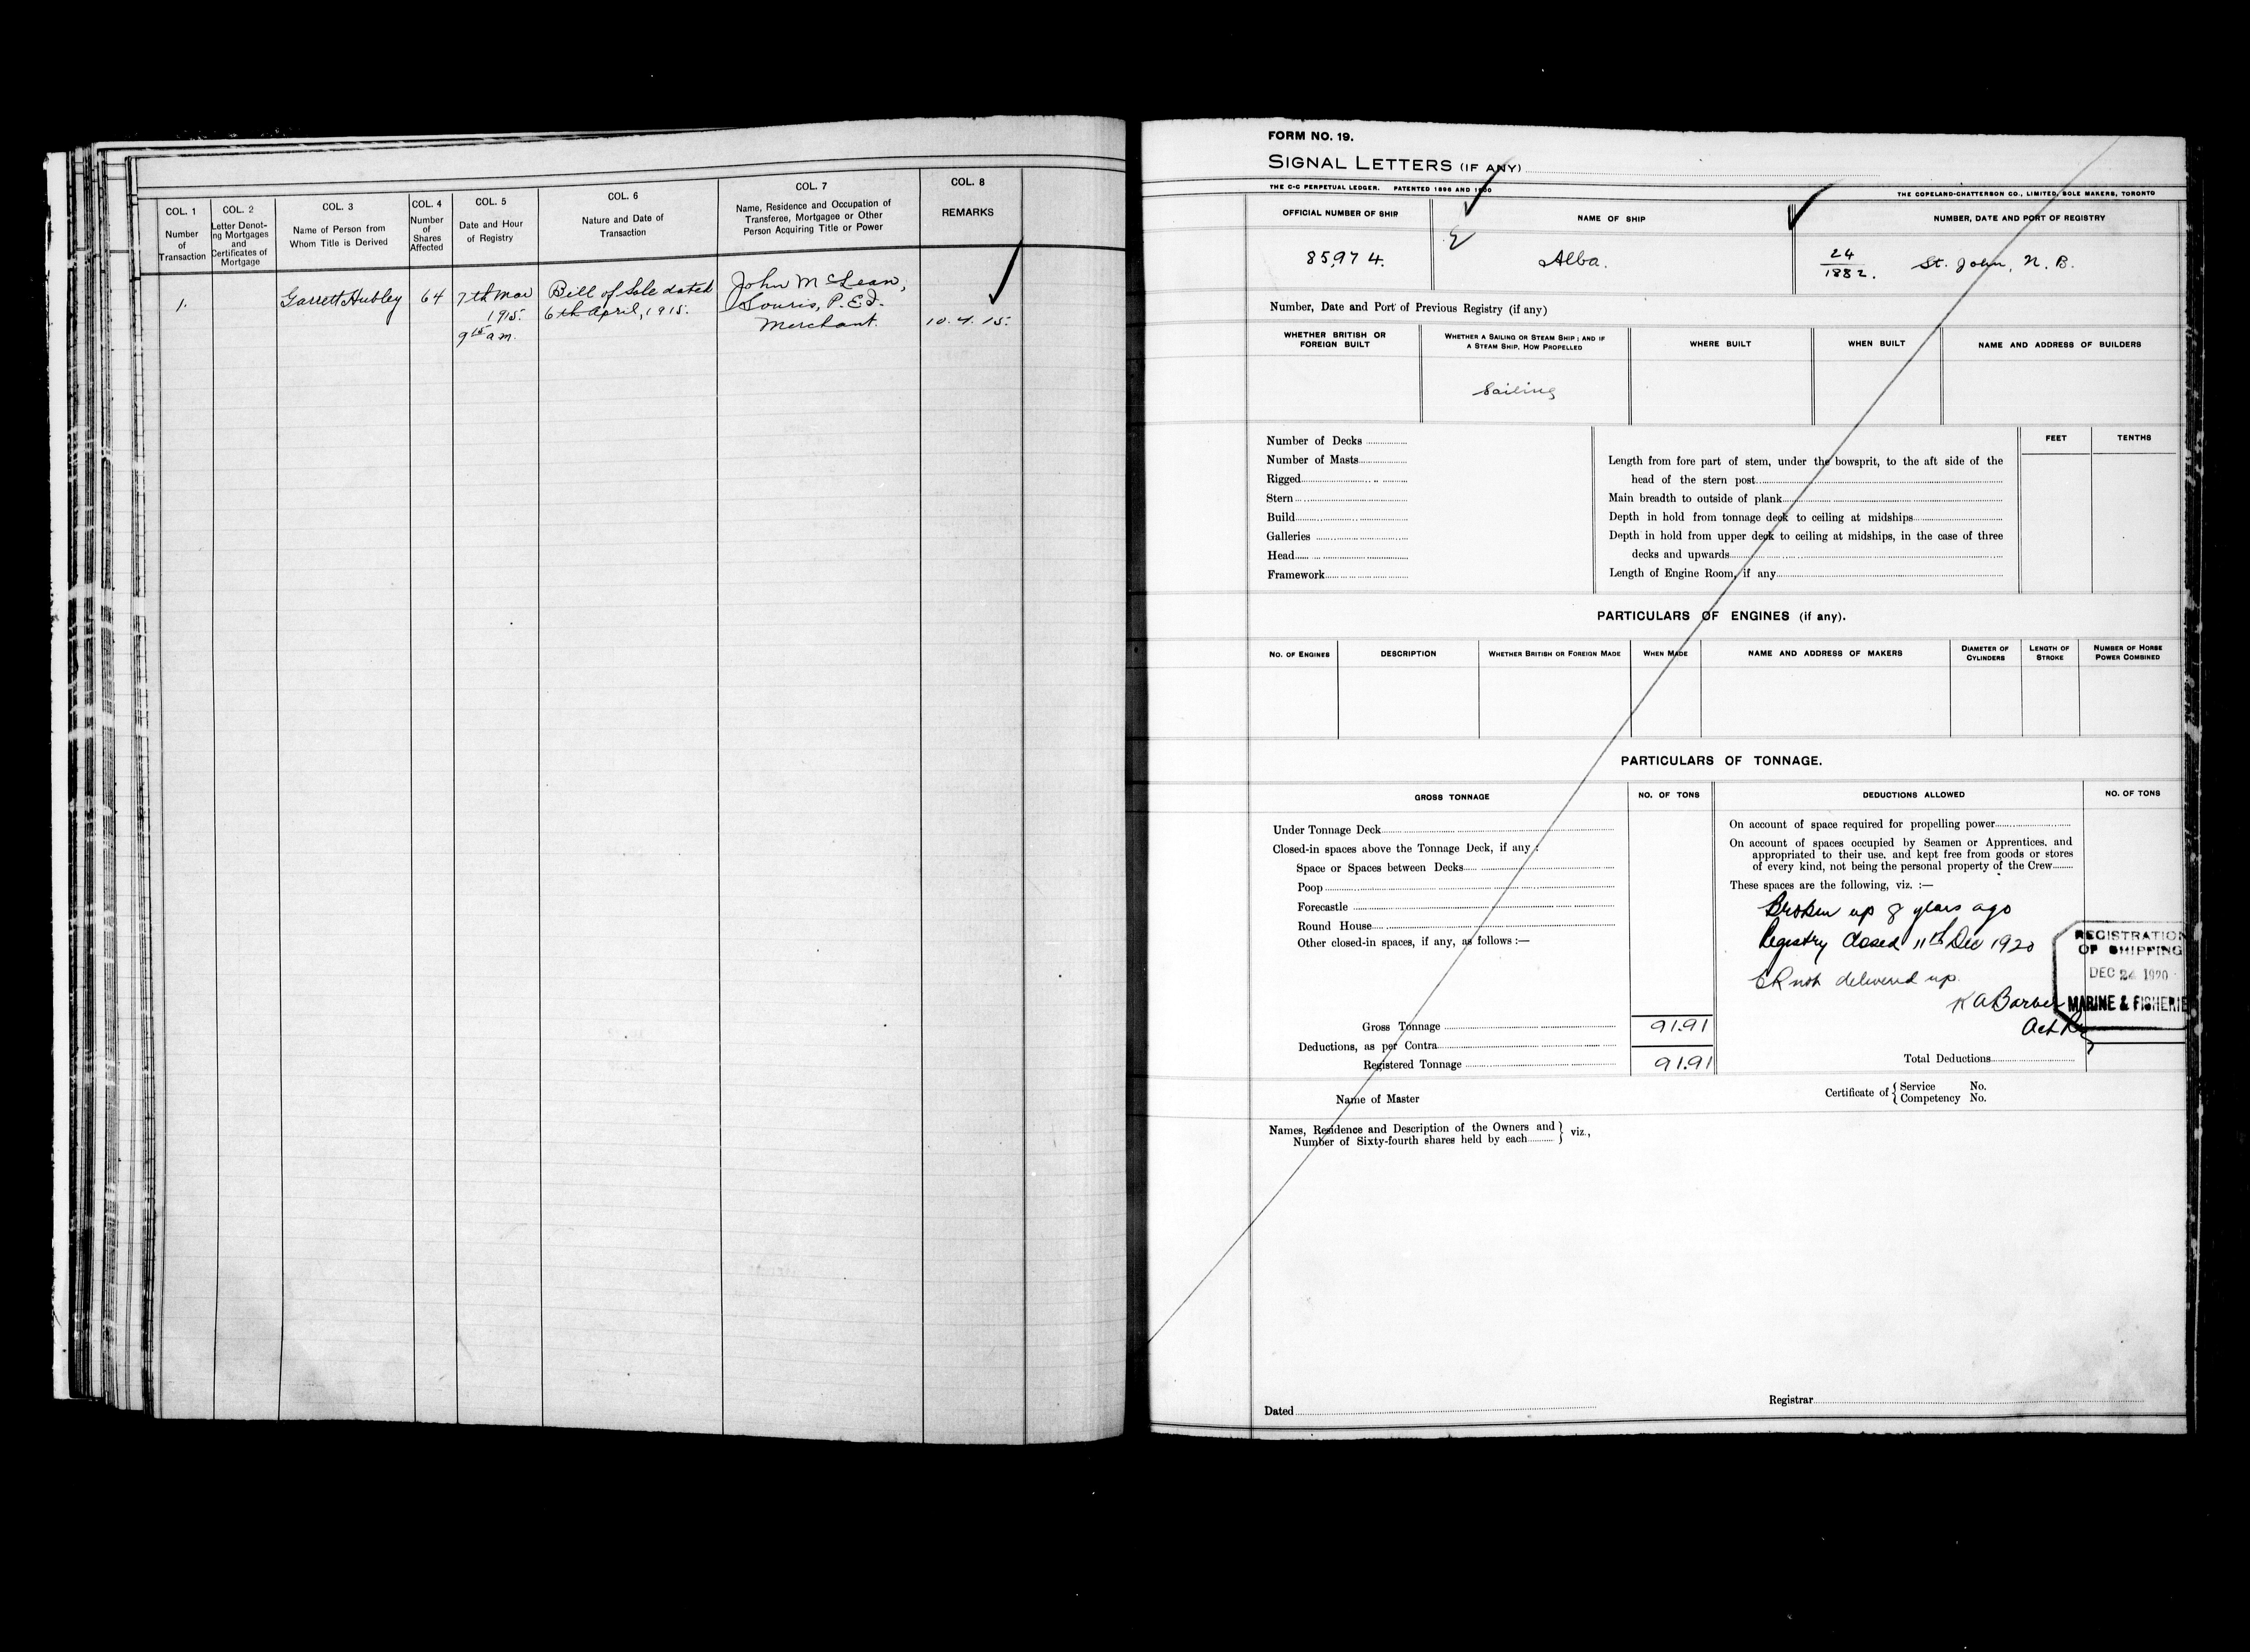 COL. 1
Number
of
Transaction
COL. 2
Letter Denot-
ing Mortgages
and
Certificates of
Mortgage
COL. 3
Name of Person from
Whom Title is Derived
COL. 4
Number
of
Shares
Affected
COL. 5
Date and Hour
of Registry
COL. 6
Nature and Date of
Transaction
COL. 7
Name, Residence and Occupation of
Transferee, Mortgagee or Other
Person Acquiring Title or Power
COL. 8
REMARKS
1.
Garrett Hubley
64
7th Mar
1915.
9 15 a m.
Bill of Sale dated
6th April, 1915.
John McLean,
Souris, P. E. I.
Merchant.
10. 4. 15.
FORM NO. 19.
SIGNAL LETTERS (IF ANY)
THE C-C PERPETUAL LEDGER. PATENTED 1896 AND 1900
THE COPELAND-CHATTERSON CO., LIMITED, SOLE MAKERS, TORONTO
OFFICIAL NUMBER OF SHIP
NAME OF SHIP
NUMBER, DATE AND PORT OF REGISTRY
85,974.
Alba.
24
1882.
St. John, N. B.
Number, Date and Port of Previous Registry (if any)
WHETHER BRITISH OR
FOREIGN BUILT
WHETHER A SAILING OR STEAM SHIP; AND IF
A STEAM SHIP, HOW PROPELLED
WHERE BUILT
WHEN BUILT
NAME AND ADDRESS OF BUILDERS
Sailing
Number of Decks
Number of Masts
Rigged
Stern
Build
Galleries
Head
Framework
FEET
TENTHS
Length from fore part of stem, under the bowsprit, to the aft side of the
head of the stern post
Main breadth to outside of plank
Depth in hold from tonnage deck to ceiling at midships
Depth in hold from upper deck to ceiling at midships, in the case of three
decks and upwards
Length of Engine Room, if any
PARTICULARS OF ENGINES (if any).
NO. OF ENGINES
DESCRIPTION
WHETHER BRITISH OR FOREIGN MADE
WHEN MADE
NAME AND ADDRESS OF MAKERS
DIAMETER OF
CYLINDERS
LENGTH OF
STROKE
NUMBER OF HORSE
POWER COMBINED
PARTICULARS OF TONNAGE.
GROSS TONNAGE
NO. OF TONS
DEDUCTIONS ALLOWED
NO. OF TONS
Under Tonnage Deck
Closed-in spaces above the Tonnage Deck, if any :
Space or Spaces between Decks
Poop
Forecastle
Round House
Other closed-in spaces, if any, as follows :—
Gross Tonnage
91.91
Deductions, as per Contra
Registered Tonnage
91.91
On account of space required for propelling power
On account of spaces occupied by Seamen or Apprentices, and
appropriated to their use, and kept free from goods or stores
of every kind, not being the personal property of the Crew
These spaces are the following, viz. :—
Broken up 8 years ago
Registry closed 11th Dec 1920
CR not delivered up.
K A Barber
Act Reg
REGISTRATION
OF SHIPPING
DEC 24 1920
MARINE & FISHERIE
Total Deductions
Name of Master
Certificate of { Service No.
Competency No.
Names, Residence and Description of the Owners and
Number of Sixty-fourth shares held by each } viz.,
Dated
Registrar